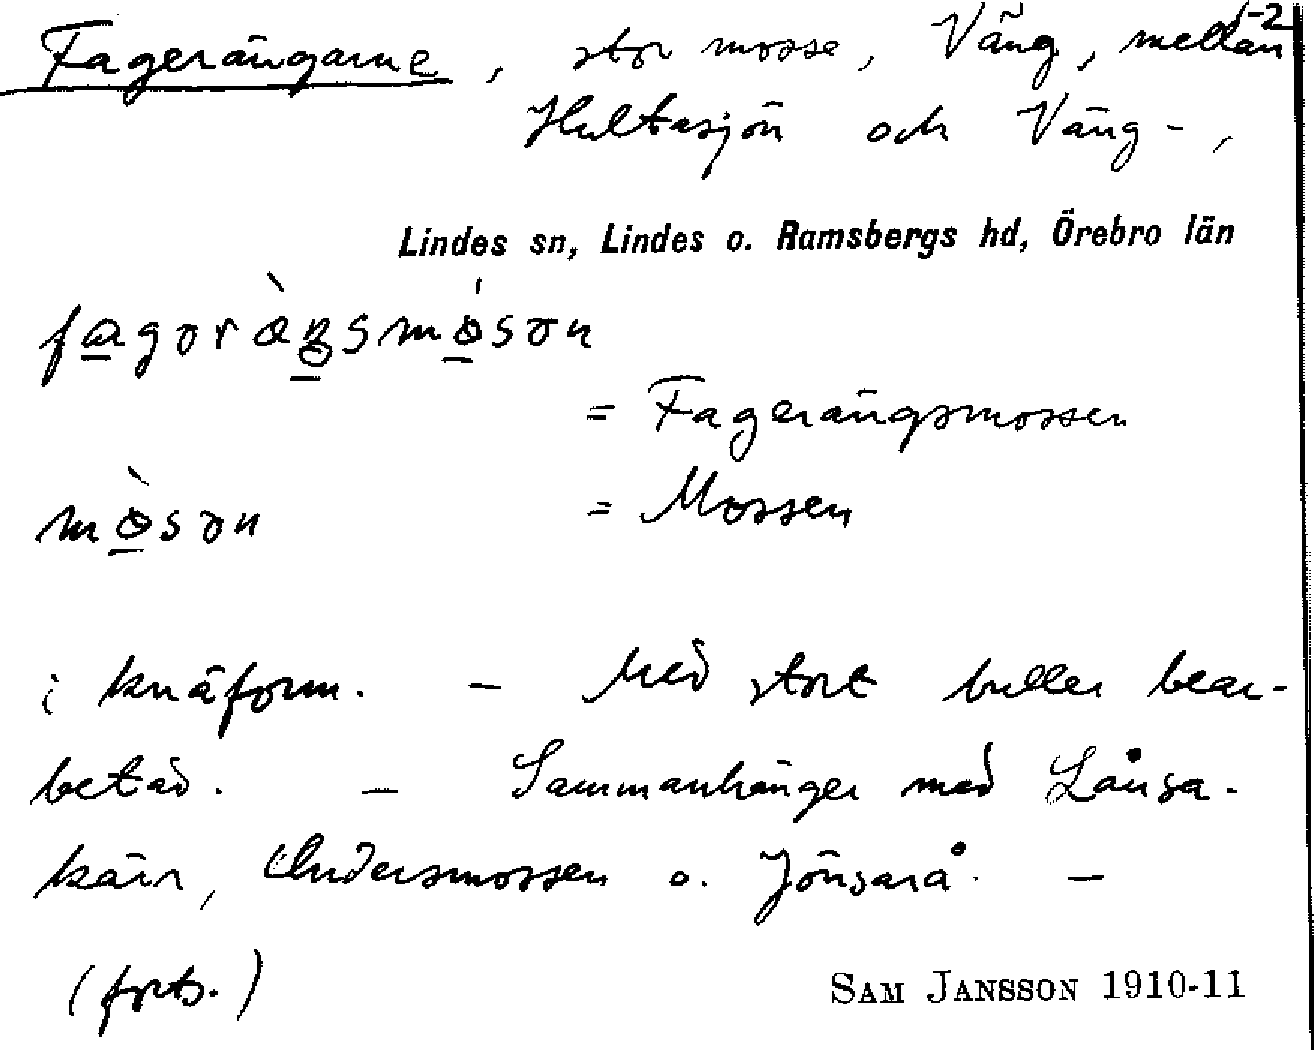 1-2
Fagerängarne, stor mosse, Väng, mellan
Hultasjön och Väng-,
Lindes sn, Lindes o. Ramsbergs hd, Örebro län
= Fagerängsmossen
= Mossen
i knäform. – Med stort buller bear-
betad. – Sammanhänger med Långa-
kärr, Andersmossen o. Jönsarå. –
(forts.)
SAM JANSSON 1910-11